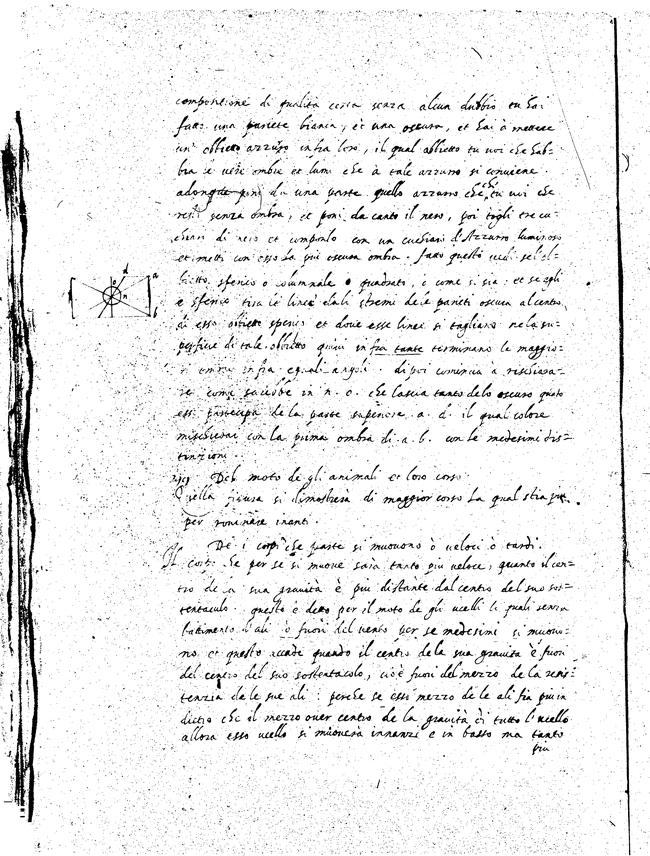 compositione di qualità certa senza alcun dubbio tu hai
fatto una pariete bianca, et una oscura, et hai à mettere
un' obbietto azzurro infra loro, il qual obbietto tu voi che hab-
bia le vere ombre et lumi che à tale azzurro si conviene.
adonque poni da una parte quello azzurro che tu voi che
resti senza ombra, et poni da canto il nero, poi togli tre cu-
chiari di nero et componlo con un cuchiaro d'Azzurro luminoso
et metti con esso La più oscura ombra. fatto questo vedi se l ob-
bietto, sferico o colunnale o quadrato, o come si sia: et se egli
è sferico tira le linee dali stremi dele parieti oscura al centro
di esso obbietto sperico et dove esse linee si tagliano nela su-
perficie di tale obbietto quivi infra tante terminano le maggio-
ri ombre infra eguali angoli. dipoi comincia à rischiara-
re come sarebbe in n. o. che lascia tanto delo oscuro quāto
esso partecipa de la parte superiore a. d. il qual colore
mischierai con la prima ombra di a. b. con le medesime dis-
tinzioni.
Del moto de gli animali et loro corso
Quella figura si dimostrera di maggior corso La qual stia più
per rovinare inanti.
De i corpi che parte si muovono ò veloci ò tardi.
Il corpo che per se si muove sara tanto più veloce, quanto il cen-
tro de la sua gravità è più distante dal centro del suo sos-
tentaculo. questo è detto per il moto de gli ucelli li quali senza
battimento d'ali ò fuori del vento per se medesimi si muovo-
no et questo accade quando il centro de la sua gravità è fuori
del centro del suo sostentacolo, cioè fuori del mezzo de la resis-
tenzia de le sue ali: perche se esso mezzo de le ali fia più in
dietro che il mezzo over centro de la gravità di tutto l'ucello
allora esso ucello si muoverà innanzi e in basso ma tanto
più
d
a
o
n
b